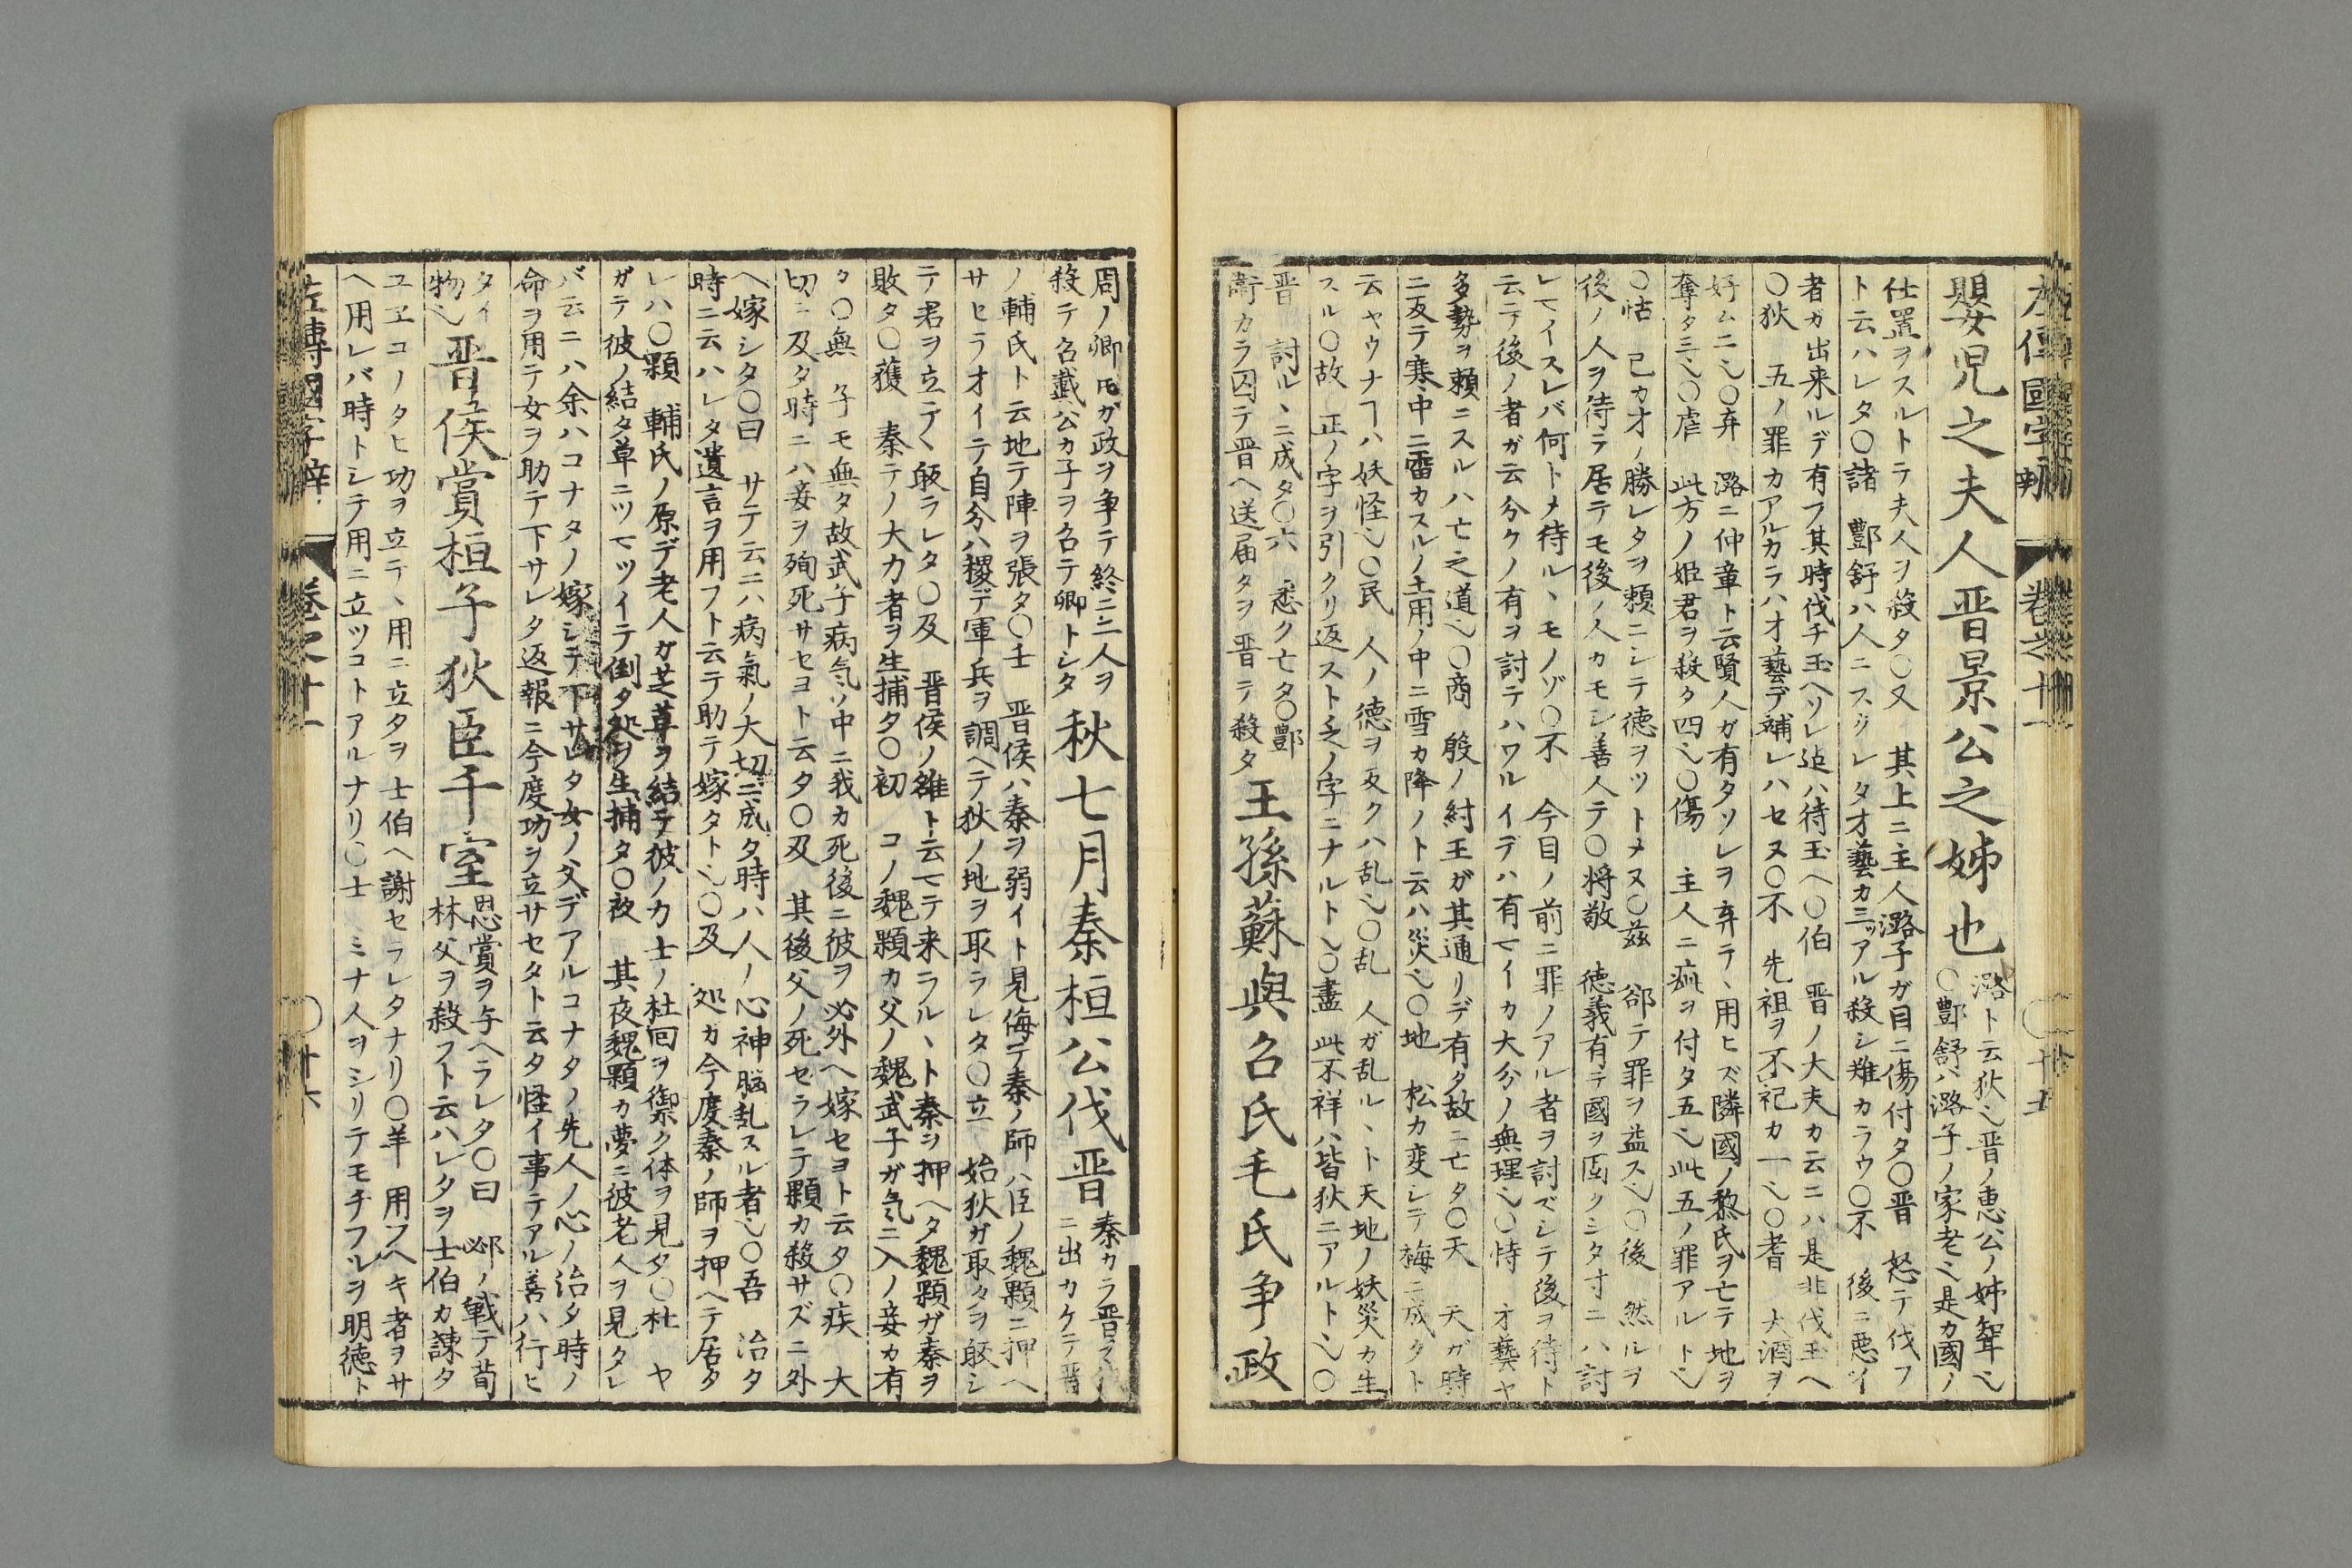 左傳國字辨 卷之十一 〇十五
嬰兒之夫人晋景公之姊也
潞ト云狄也晋ノ惠公ノ姊聟也
〇酆舒ハ潞子ノ家老也是カ國ノ
仕置ヲスルトテ夫人ヲ殺タ〇又 其上ニ主人潞子ガ目ニ傷付タ〇晋 怒テ伐フ
ト云ハレタ〇諸 酆舒ハ人ニスグレタ才藝カ三ツアル殺シ難カラウ〇不 後ニ悪イ
者ガ出来ルデ有フ其時伐チ玉ヘソレ迠ハ待玉ヘ〇伯 晋ノ大夫カ云ニハ是非伐玉ヘ
〇狄 五ノ罪カアルカラハ才藝デ補レハセヌ〇不 先祖ヲ不祀カ一也〇耆 大酒ヲ
好ムニ也〇弃 潞ニ仲章ト云賢人ガ有タソレヲ弃テ、用ヒズ隣國ノ黎氏ヲ亡テ地ヲ
奪タ三也〇虐 此方ノ姫君ヲ殺タ四也〇傷 主人ニ疵ヲ付タ五也此五ノ罪アルト也
〇怙 己カ才ノ勝レタヲ頼ニシテ徳ヲツトメヌ〇茲 郤テ罪ヲ益ス也〇後 然ルヲ
後ノ人ヲ待テ居テモ後ノ人カモシ善人テ〇将敬 徳義有テ國ヲ固クシタ寸ニハ討
レマイスレバ何トメ待ル、モノゾ〇不 今目ノ前ニ罪ノアル者ヲ討ズシテ後ヲ待ト
云テ後ノ者ガ云分ケノ有ヲ討テハワルイデハ有マイカ大分ノ無理也〇恃 才藝ヤ
多勢ヲ頼ニスルハ亡之道也〇商 殷ノ紂王ガ其通リデ有タ故ニ亡タ〇天 天ガ時
ニ反テ寒中ニ雷カスルノ土用ノ中ニ雪カ降ノト云ハ災也〇地 松カ変レテ梅ニ成タト
云ヤウナヿハ妖怪也〇民 人ノ徳ヲ反クハ乱也〇乱 人ガ乱ル、ト天地ノ妖災カ生
スル〇故 正ノ字ヲ引クリ返スト乏ノ字ニナルト也〇盡 此不祥ハ皆狄ニアルト也〇
晋 討ル、ニ成タ〇六 悉ク亡タ〇酆
衛カラ囚テ晋ヘ送届タヲ晋テ殺タ
王孫蘇與召氏毛氏争政
周ノ卿𪜈ガ政ヲ争テ終ニ二人ヲ
殺テ召戴公カ子ヲ召テ卿トシタ
秋七月秦桓公伐晋
秦カラ晋ヲ伐
ニ出カケテ晋
ノ輔氏ト云地テ陣ヲ張タ〇壬 晋侯ハ秦ヲ弱イト見侮テ秦ノ師ハ臣ノ魏顆ニ押ヘ
サセラオイテ自分ハ稷デ軍兵ヲ調ヘテ狄ノ地ヲ取ラレタ〇立 始狄ガ取タヲ敀シ
テ君ヲ立テ、敀ラレタ〇及 晋侯ノ雒ト云マテ来ラル、ト秦ヲ押ヘタ魏顆ガ秦ヲ
敗タ〇獲 秦テノ大力者ヲ生捕タ〇初 コノ魏顆カ父ノ魏武子ガ気ニ入ノ妾カ有
タ〇無 子モ無タ故武子病気ノ中ニ我カ死後ニ彼ヲ必外ヘ嫁セヨト云タ〇疾 大
切ニ及タ時ニハ妾ヲ殉死サセヨト云タ〇及 其後父ノ死セラレテ顆カ殺サズニ外
ヘ嫁シタ〇曰 サテ云ニハ病氣ノ大切ニ成タ時ハ人ノ心神脳乱スル者也〇吾 治タ
時ニ云ハレタ遺言ヲ用フト云テ助テ嫁タト也〇及 処カ今度秦ノ師ヲ押ヘテ居タ
レハ〇顆 輔氏ノ原デ老人ガ芝草ヲ結テ彼ノカ士ノ杜回ヲ禦ク体ヲ見タ〇杜 ヤ
ガテ彼ノ結タ草ニツマツイテ倒タ処ヲ生捕タ〇夜 其夜魏顆カ夢ニ彼老人ヲ見タレ
バ云ニハ余ハコナタノ嫁シテ下サレタ女ノ父デアルコナタノ先人ノ心ノ治タ時ノ
命ヲ用テ女ヲ助テ下サレタ返報ニ今度功ヲ立サセタト云タ怪イ事テアル善ハ行ヒ
タイ
物也
晋侯賞桓子狄臣千室
恩賞ヲ与ヘラレタ〇曰 邲ノ戦テ荀
林父ヲ殺フト云ハレタヲ士伯カ諫タ
ユヱコノタヒ功ヲ立テ、用ニ立タヲ士伯ヘ謝セラレタナリ〇羊 用フヘキ者ヲサ
ヘ用レバ時トシテ用ニ立ツコトアルナリ〇士 ミナ人ヲシリテモチフルヲ明徳ト
左傳國字辨 卷之十一 〇十六